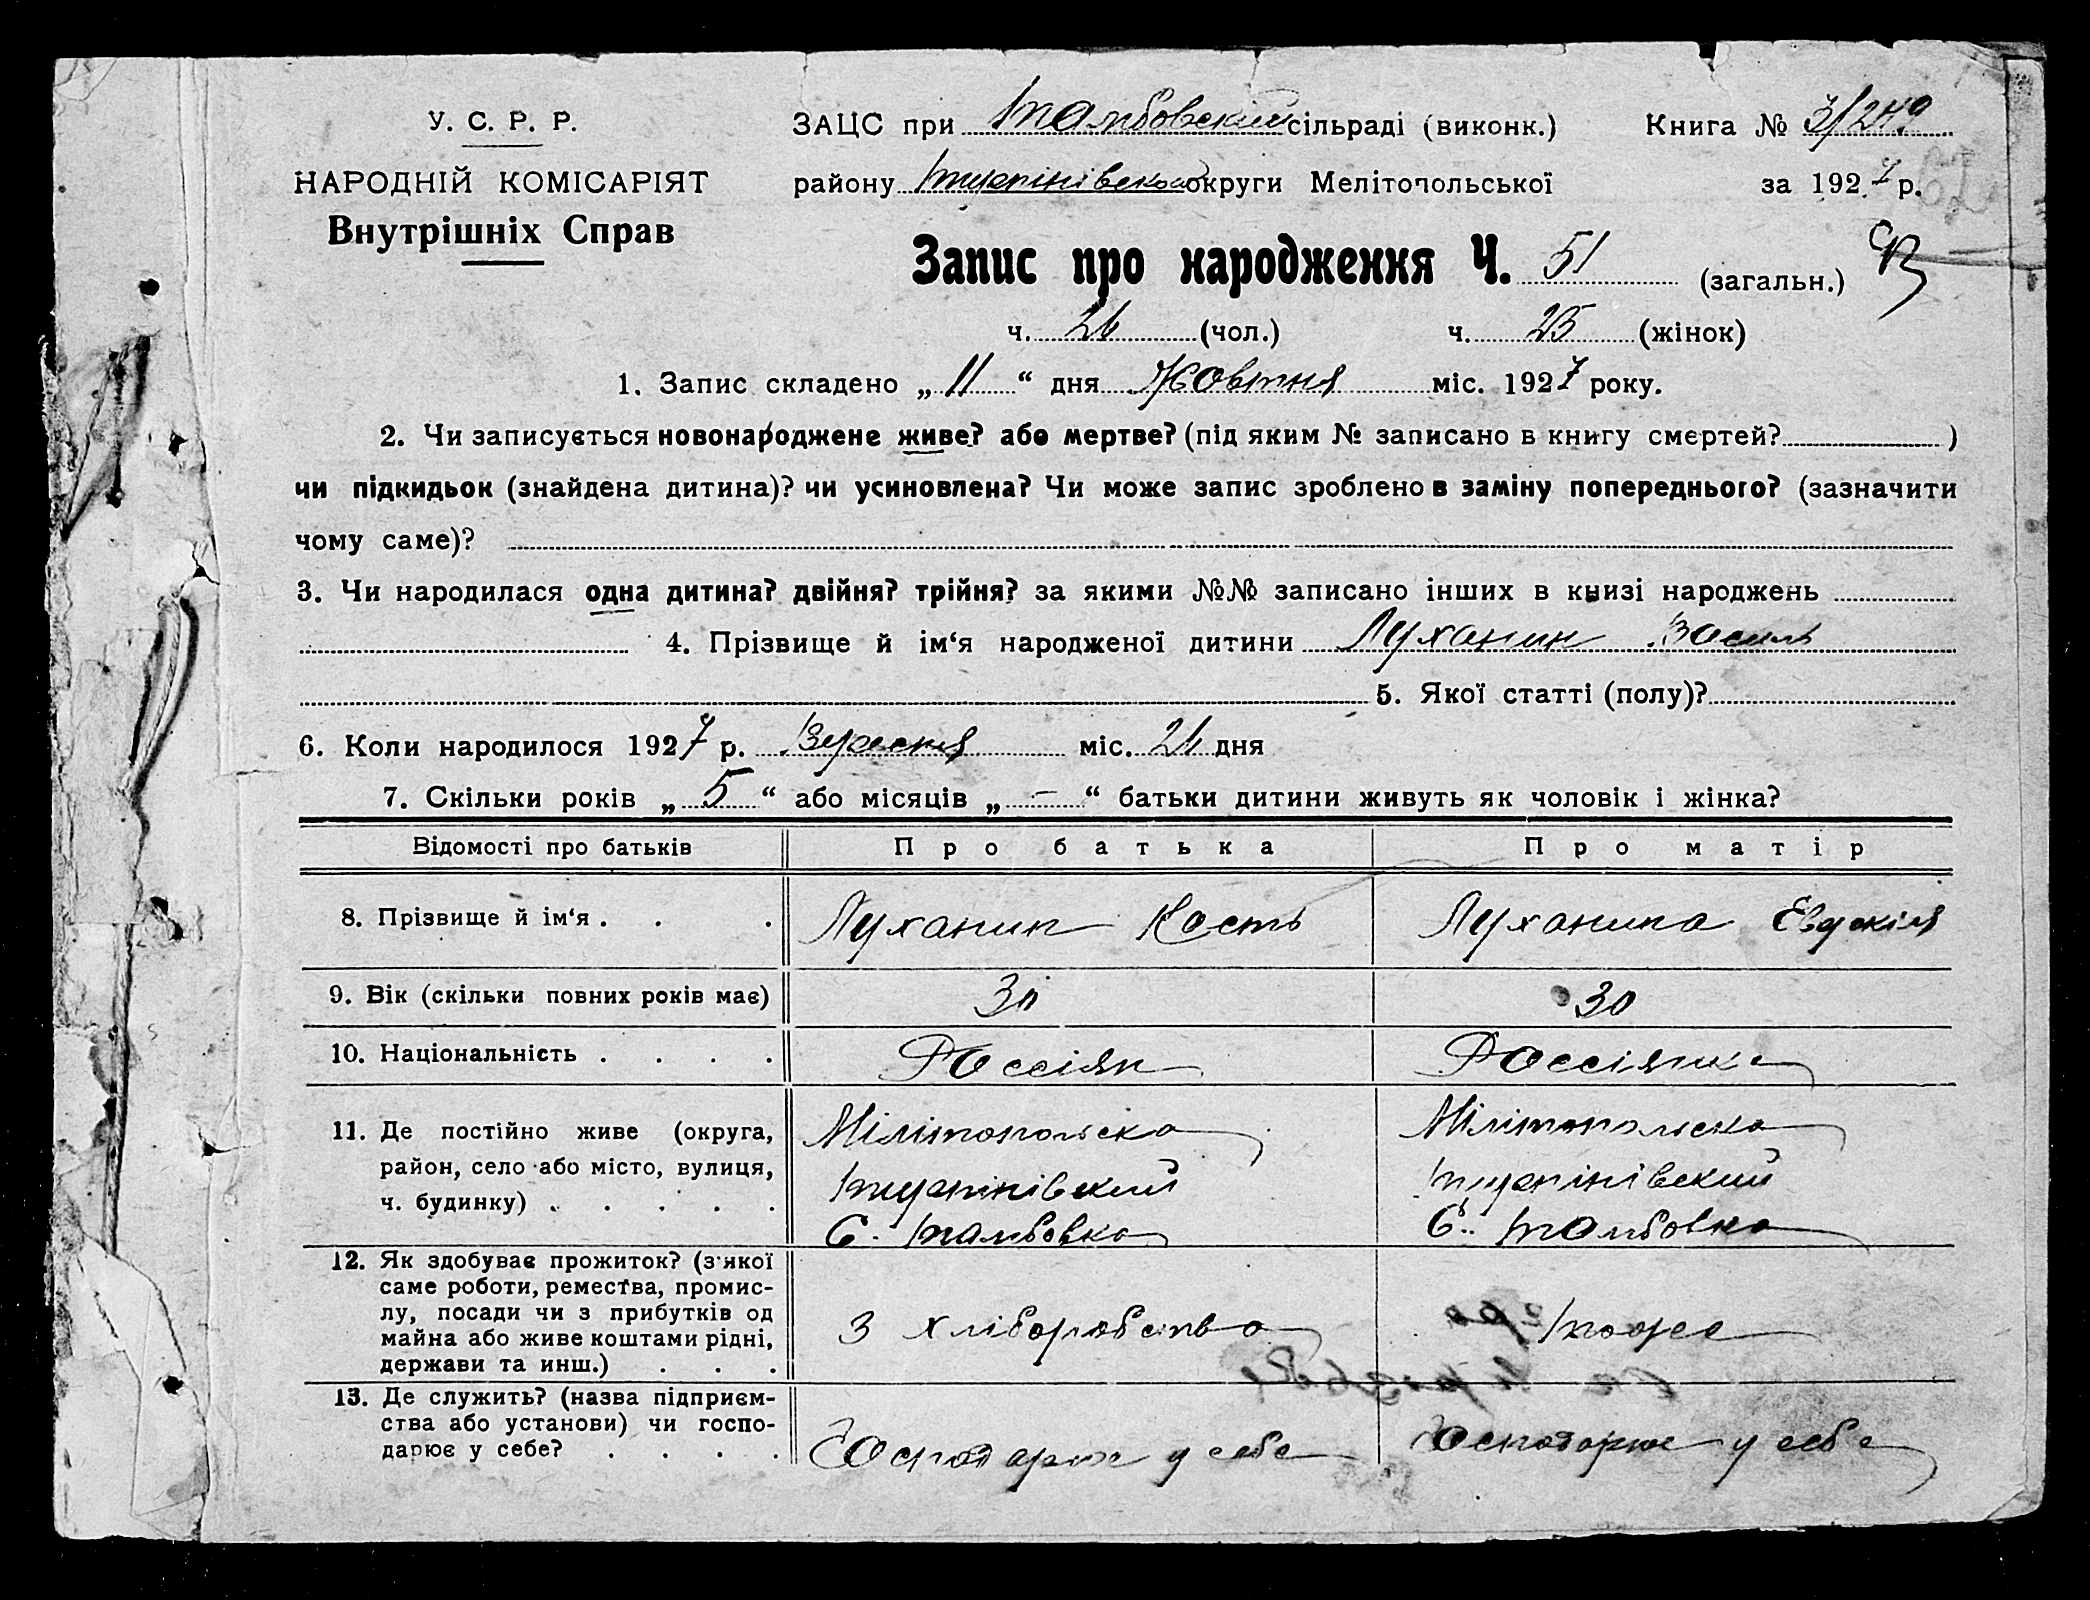 У. С. Р. Р.
НАРОДНІЙ КОМІСАРІЯТ
Внутрішніх Справ
ЗАЦС при Тамбовский сільраді (виконк.) Книга №
району округи Мелітопольської за 1927 р.
Запис про народження Ч. 51 (загальн.)
ч. 26 (чол.) ч. 25 (жінок)
1. Запис складено „ 11 “ дня Жовтня міс. 1927 року.
2. Чи записується новонароджене живе? або мертве? (під яким № записано в книгу смертей? )
чи підкидьок (знайдена дитина)? чи усиновлена? Чи може запис зроблено в заміну попереднього? (зазначити
чому саме)?
3. Чи народилася одна дитина? двійня? трійня? за якими №№ записано інших в книзі народжень
4. Прізвище й ім‘я народженої дитини Луханин Василь
5. Якої статті (полу)?
6. Коли народилося 1927 р. Вересня міс. 26 дня
7. Скільки років „ 5 “ або місяців „ – “ батьки дитини живуть як чоловік і жінка?
Відомості про батьків Про батька Про матір
8. Прізвище й ім‘я . . . Луханин Кость Луханина Евдокія
9. Вік (скільки повних років має) 30 30
10. Національність . . . . Россіян Россіянка
11. Де постійно живе (округа, район, село або місто, вулиця, ч. будинку) . . . . .
Мілітопольска Мілітопольска
С. Тамбовка С. Тамбовка
12. Як здобуває прожиток? (з'якої
саме роботи, ремества, промис-
лу, посади чи з прибутків од
майна або живе коштами рідні,
держави та инш.) . . .
З хліборобства Тоже
13. Де служить? (назва підприєм-
ства або установи) чи госпо-
дарює у себе? . . . .
Господарює у себе Господарює у себе